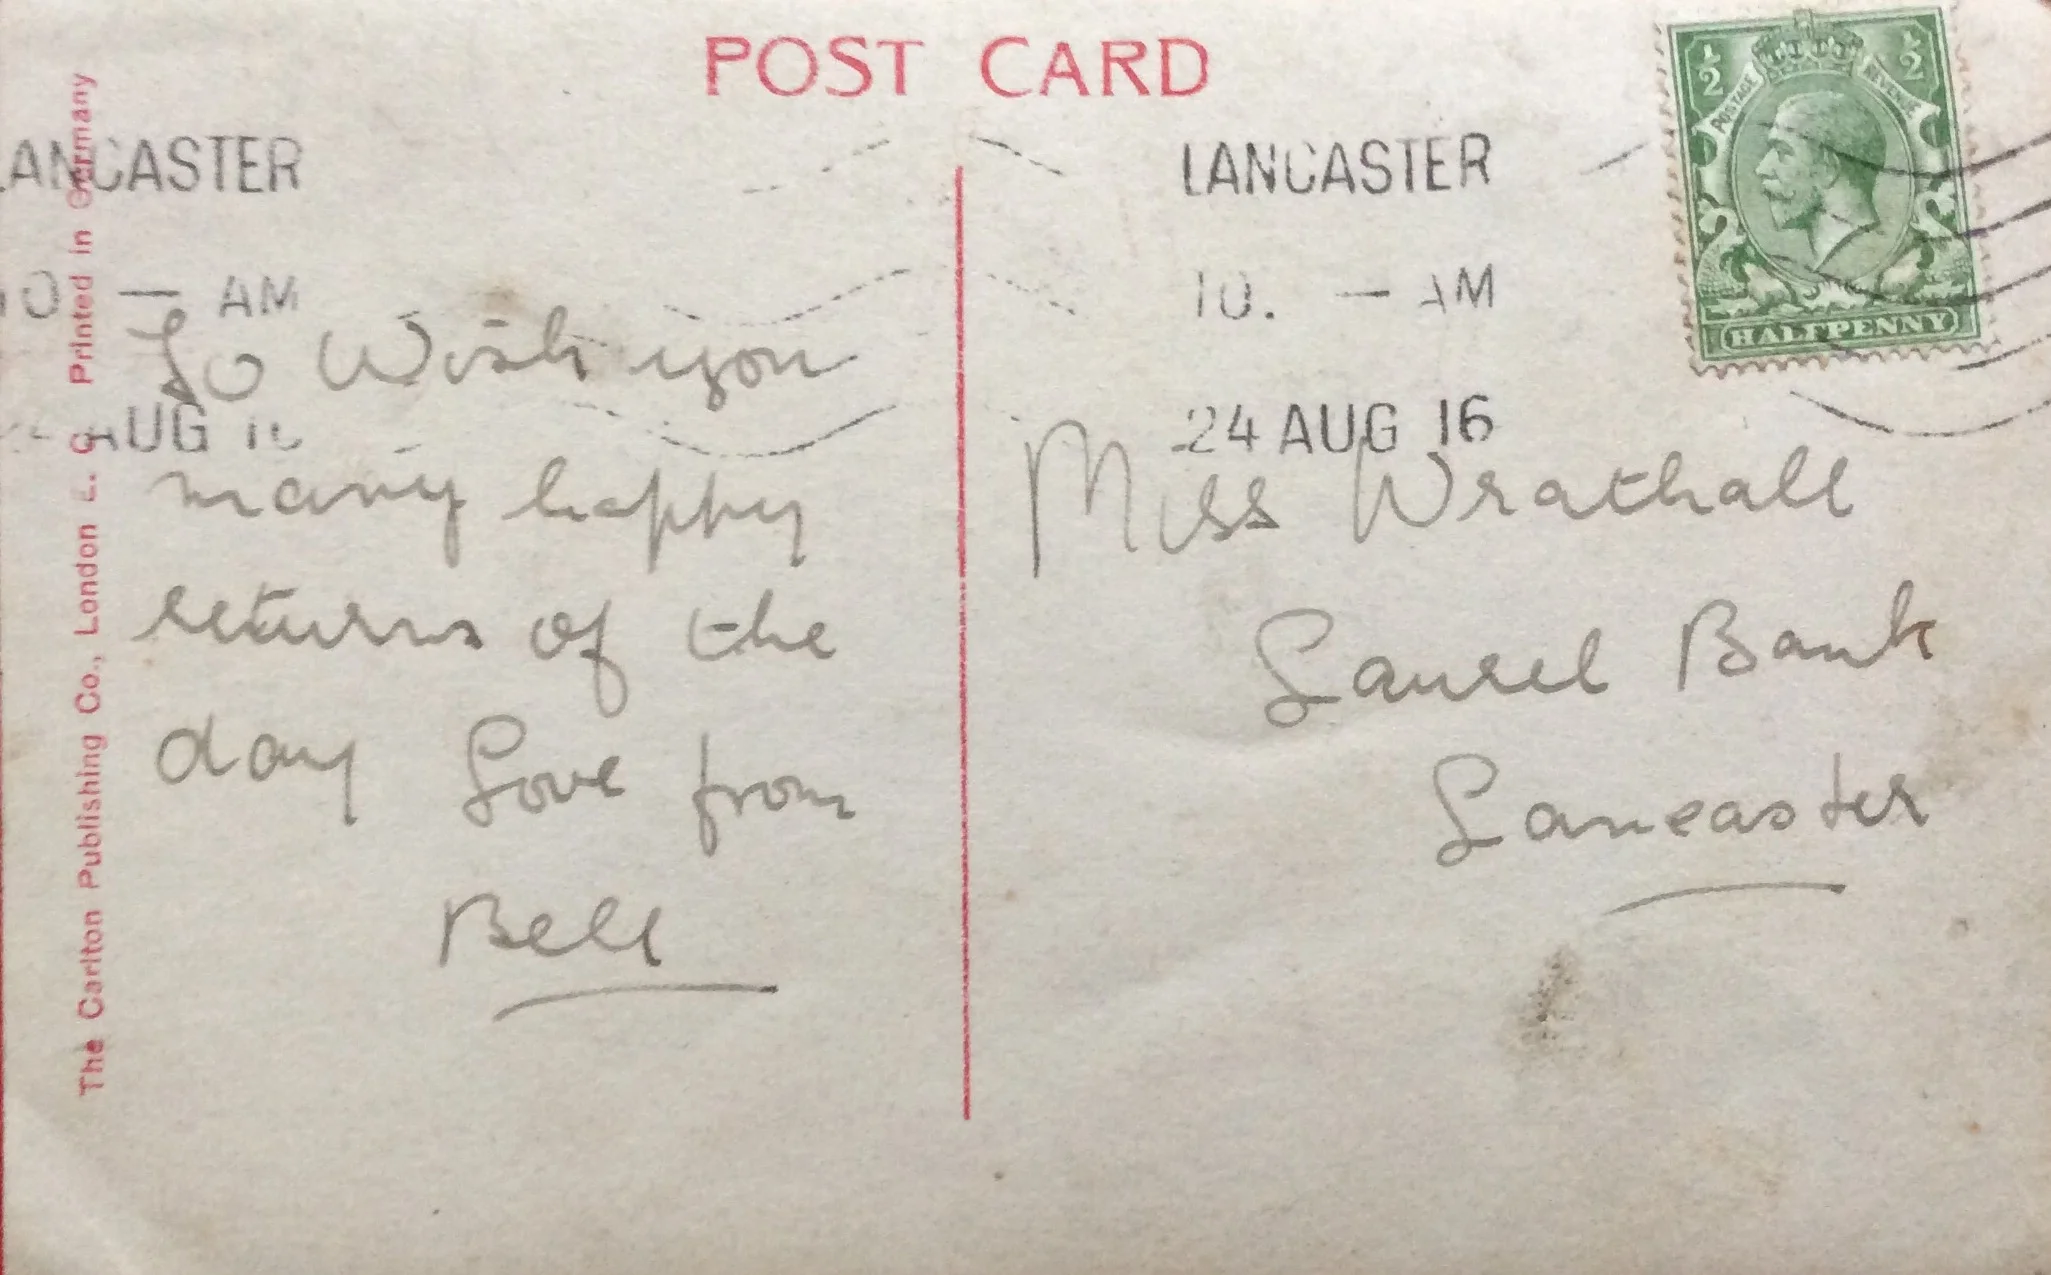 POST CARD
LANCASTER
10 — AM
AUG 16
LANCASTER
10. — AM
24 AUG 16
1/2 1/2
POSTAGE REVENUE
HALFPENNY
The Carlton Publishing Co., London E. C. Printed in Germany
To Wish you
many happy
returns of the
day Love from
Bell
Miss Wrathall
Laurel Bank
Lancaster